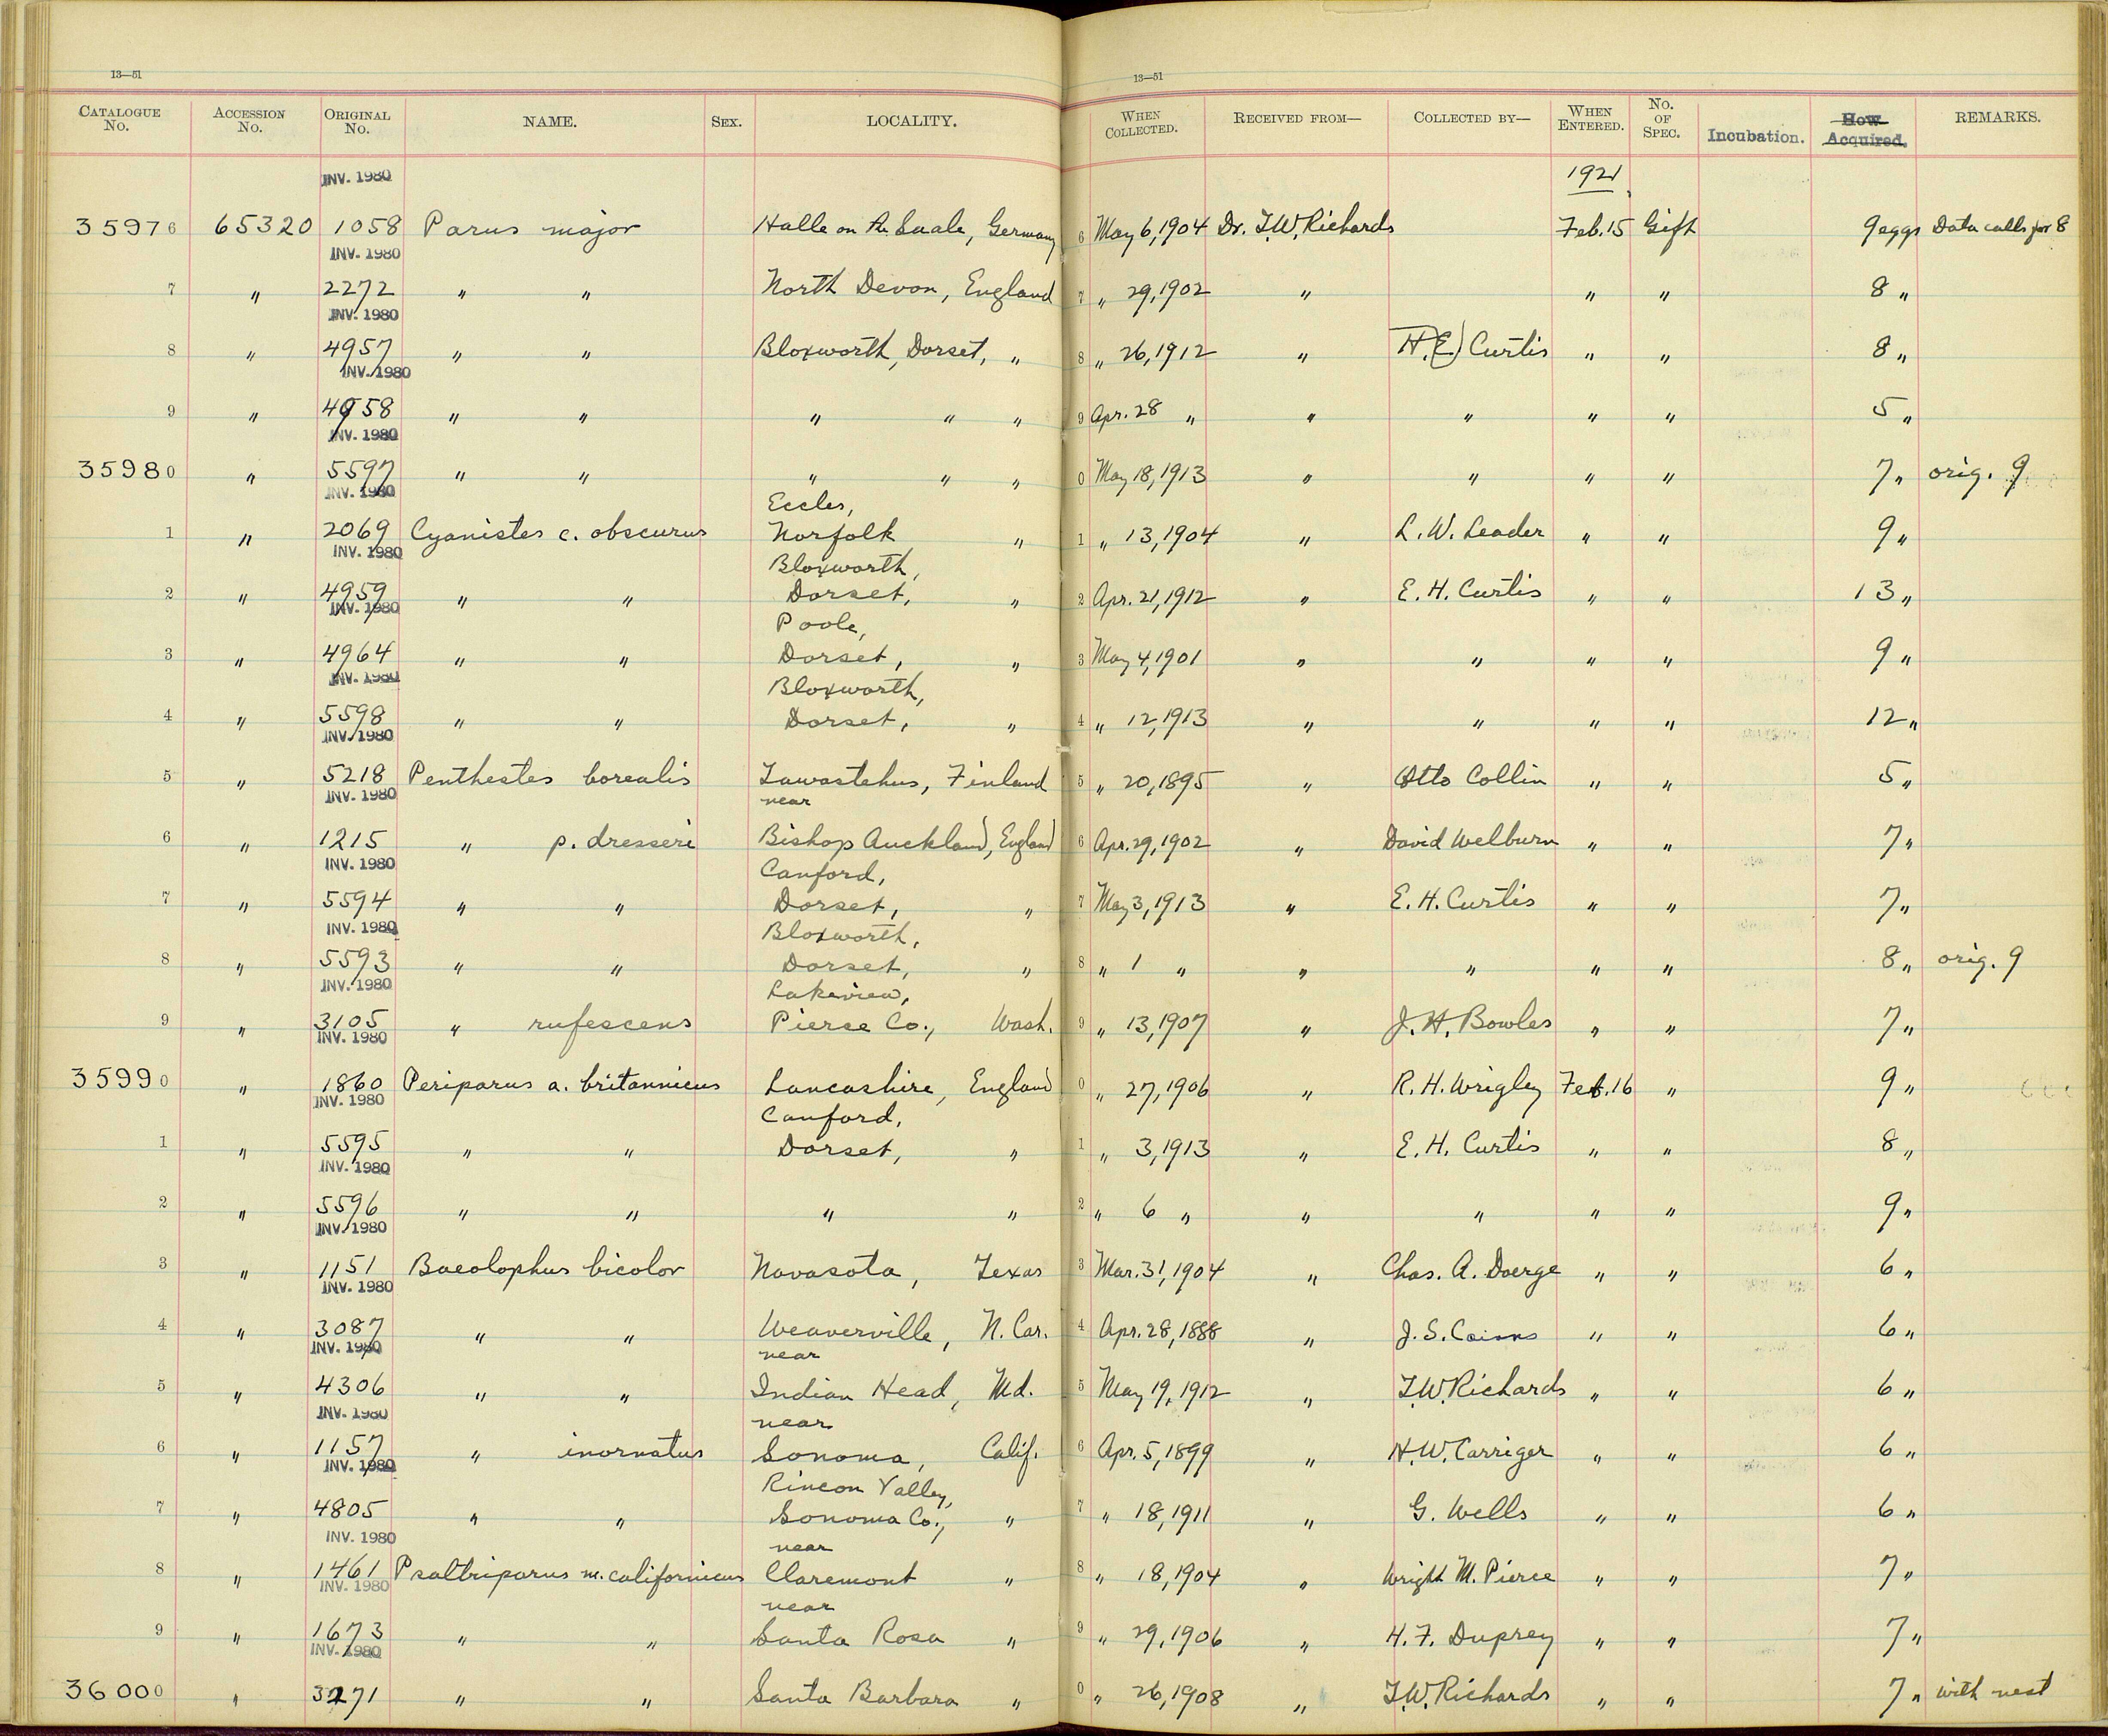 13—51 13—51
CATALOGUE No. ACCESSION No. ORIGINAL No. NAME. SEX. LOCALITY. WHEN COLLECTED. RECEIVED FROM— COLLECTED BY— WHEN ENTERED. No. OF SPEC. Incubation. How Acquired. REMARKS.
INV. 1980 1921
35976 65320 1058 Parus major Halle on the Saale, Germany 6 May 6, 1904 Dr. T.W. Richards Feb. 15 Gift 9 eggs Data calls for 8
INV. 1980
7 " 2272 " " North Devon, England 7 " 29, 1902 " " " 8 "
INV. 1980
8 " 4957 " " Bloxworth, Dorset, " 8 " 26, 1912 " H.(E.) Curtis " " 8 "
INV. 1980
9 " 4958 " " " " " 9 Apr. 28 " " " " " 5 "
INV. 1980
35980 " 5597 " " " " " 0 May 18, 1913 " " " " 7 " orig. 9
INV. 1980 Eccles,
1 " 2069 Cyanistes c. obscurus Norfolk " 1 " 13, 1904 " L. W. Leader " " 9 "
INV. 1980 Bloxworth,
2 " 4959 " " Dorset, " 2 Apr. 21, 1912 " E. H. Curtis " " 13 "
INV. 1980 Poole,
3 " 4964 " " Dorset, " 3 May 4, 1901 " " " " 9 "
INV. 1980 Bloxworth,
4 " 5598 " " Dorset, " 4 " 12, 1913 " " " " 12 "
INV. 1980
5 " 5218 Penthestes borealis Tawastehus, Finland 5 " 20, 1895 " Otto Collin " " 5 "
INV. 1980 near
6 " 1215 " p. dresseri Bishop Auckland, England 6 Apr. 29, 1902 " David Welburn " " 7 "
INV. 1980 Canford,
7 " 5594 " " Dorset, " 7 May 3, 1913 " E. H. Curtis " " 7 "
INV. 1980 Bloxworth,
8 " 5593 " " Dorset, " 8 " 1 " " " " " 8 " orig. 9
INV. 1980 Lakeview,
9 " 3105 " rufescens Pierce Co., Wash. 9 " 13, 1907 " J. H. Bowles " " 7 "
INV. 1980
35990 " 1860 Periparus a. britannicus Lancashire, England 0 " 27, 1906 " R. H. Wrigley Feb. 16 " 9 "
INV. 1980 Canford,
1 " 5595 " " Dorset, " 1 " 3, 1913 " E. H. Curtis " " 8 "
INV. 1980
2 " 5596 " " " " 2 " 6 " " " " " 9 "
INV. 1980
3 " 1151 Baeolophus bicolor Navasota, Texas 3 Mar. 31, 1904 " Chas. A. Doerge " " 6 "
INV. 1980
4 " 3087 " " Weaverville, N. Car. 4 Apr. 28, 1888 " J. S. Cairns " " 6 "
INV. 1980 near
5 " 4306 " " Indian Head, Md. 5 May 19, 1912 " T.W. Richards " " 6 "
INV. 1980 near
6 " 1157 " inornatus Sonoma, Calif. 6 Apr. 5, 1899 " H.W. Carriger " " 6 "
INV. 1980 Rincon Valley,
7 " 4805 " " Sonoma Co., " 7 " 18, 1911 " G. Wells " " 6 "
INV. 1980 near
8 " 1461 Psaltriparus m. californicus Claremont " 8 " 18, 1904 " Wright M. Pierce " " 7 "
INV. 1980 near
9 " 1673 " " Santa Rosa " 9 " 29, 1906 " H. F. Duprey " " 7 "
INV. 1980
36000 " 3271 " " Santa Barbara " 0 " 26, 1908 " T.W. Richards " " 7 " with nest